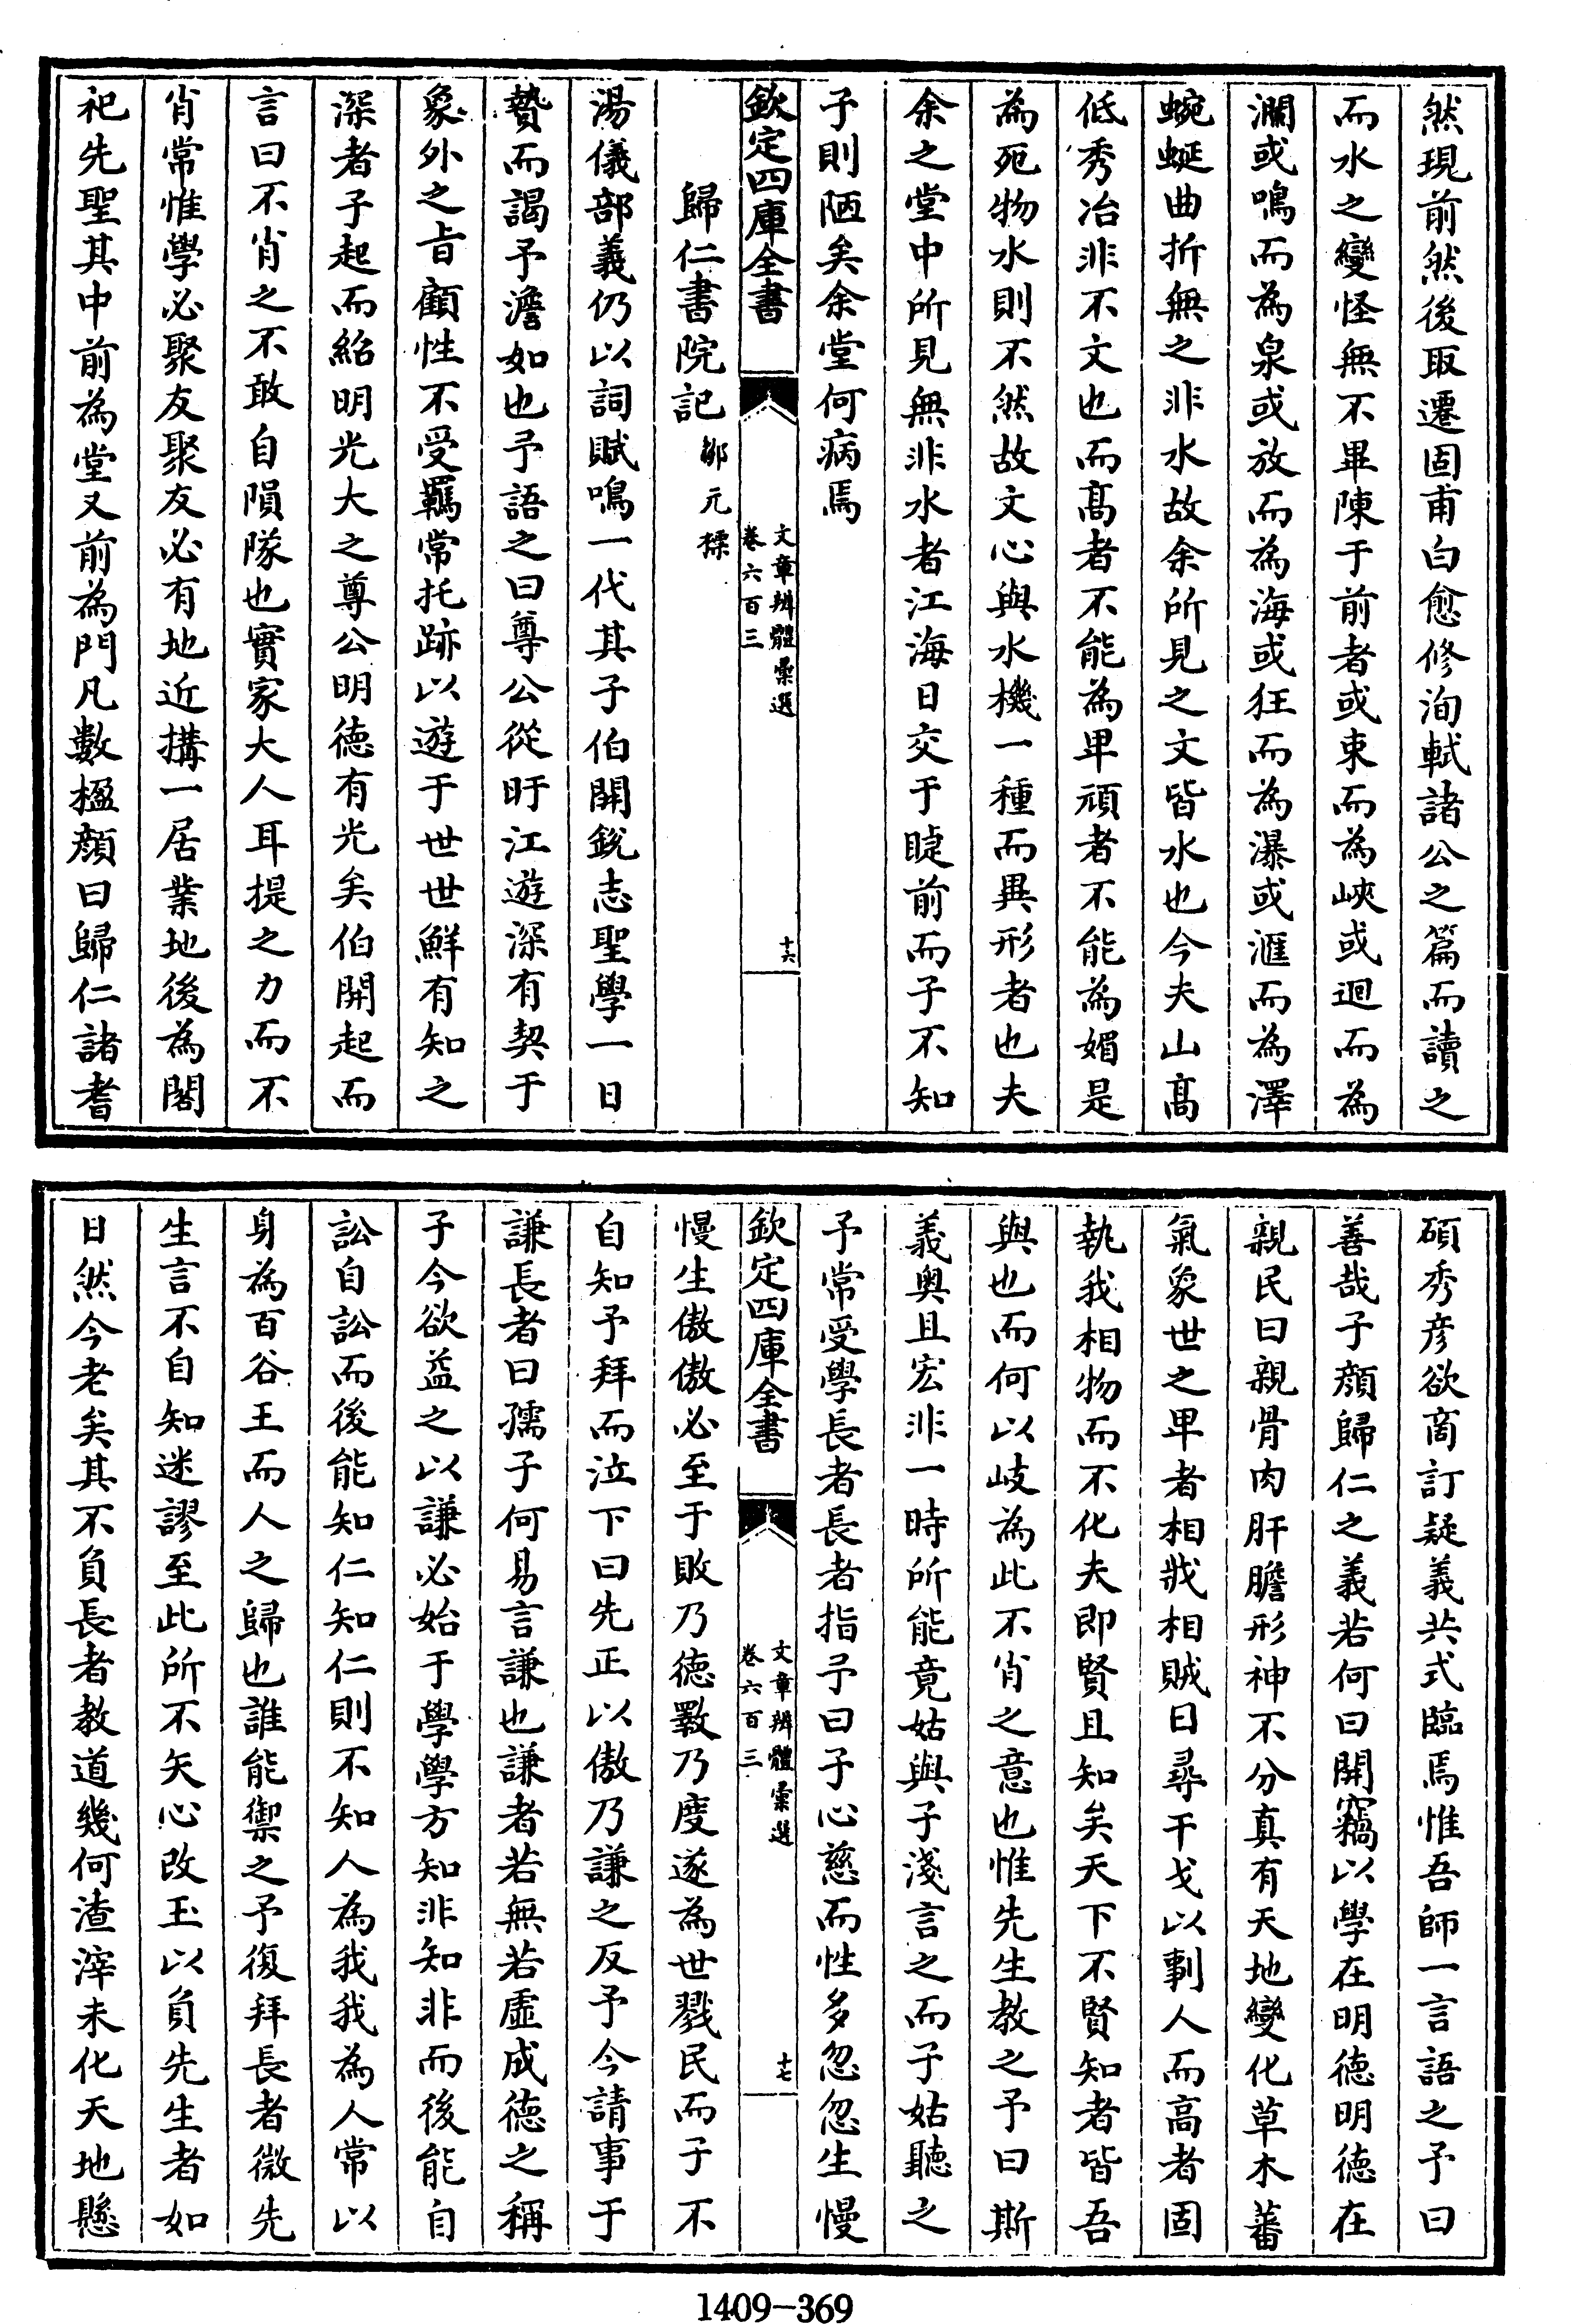 然現前然後取遷固甫白愈修洵軾諸公之篇而讀之
而水之變怪無不畢陳于前者或束而為峽或迴而為
瀾或鳴而為泉或放而為海或狂而為瀑或滙而為澤
蜿蜒曲折無之非水故余所見之文皆水也今夫山髙
低秀冶非不文也而髙者不能為卑頑者不能為媚是
為死物水則不然故文心與水機一種而異形者也夫
余之堂中所見無非水者江海日交于睫前而子不知
子則陋矣余堂何病焉
欽定四庫全書
文章辨體彚選
卷六百三
十六
歸仁書院記 鄒元標
湯儀部義仍以詞賦鳴一代其子伯開鋭志聖學一日
贄而謁予澹如也予語之曰尊公從盱江遊深有契于
象外之旨顧性不受羈常托跡以遊于世世鮮有知之
深者子起而紹明光大之尊公明徳有光矣伯開起而
言曰不肖之不敢自隕隊也實家大人耳提之力而不
肖常惟學必聚友聚友必有地近搆一居業地後為閣
祀先聖其中前為堂又前為門凡數楹顔曰歸仁諸耆
碩秀彦欲商訂疑義共式臨焉惟吾師一言語之予曰
善哉子顔歸仁之義若何曰開竊以學在明徳明徳在
親民曰親骨肉肝膽形神不分真有天地變化草木蕃
氣象世之卑者相戕相賊日尋干戈以剚人而高者固
執我相物而不化夫即賢且知矣天下不賢知者皆吾
與也而何以岐為此不肖之意也惟先生教之予曰斯
義奥且宏非一時所能竟姑與子淺言之而子姑聽之
予常受學長者長者指予曰子心慈而性多忽忽生慢
欽定四庫全書
文章辨體彚選
卷六百三
十七
慢生傲傲必至于敗乃徳斁乃度遂為世戮民而于不
自知予拜而泣下曰先正以傲乃謙之反予今請事于
謙長者曰孺子何易言謙也謙者若無若虛成徳之稱
子今欲益之以謙必始于學學方知非知非而後能自
訟自訟而後能知仁知仁則不知人為我我為人常以
身為百谷王而人之歸也誰能禦之予復拜長者微先
生言不自知迷謬至此所不矢心改玉以負先生者如
日然今老矣其不負長者教道幾何渣滓未化天地懸
1409-369